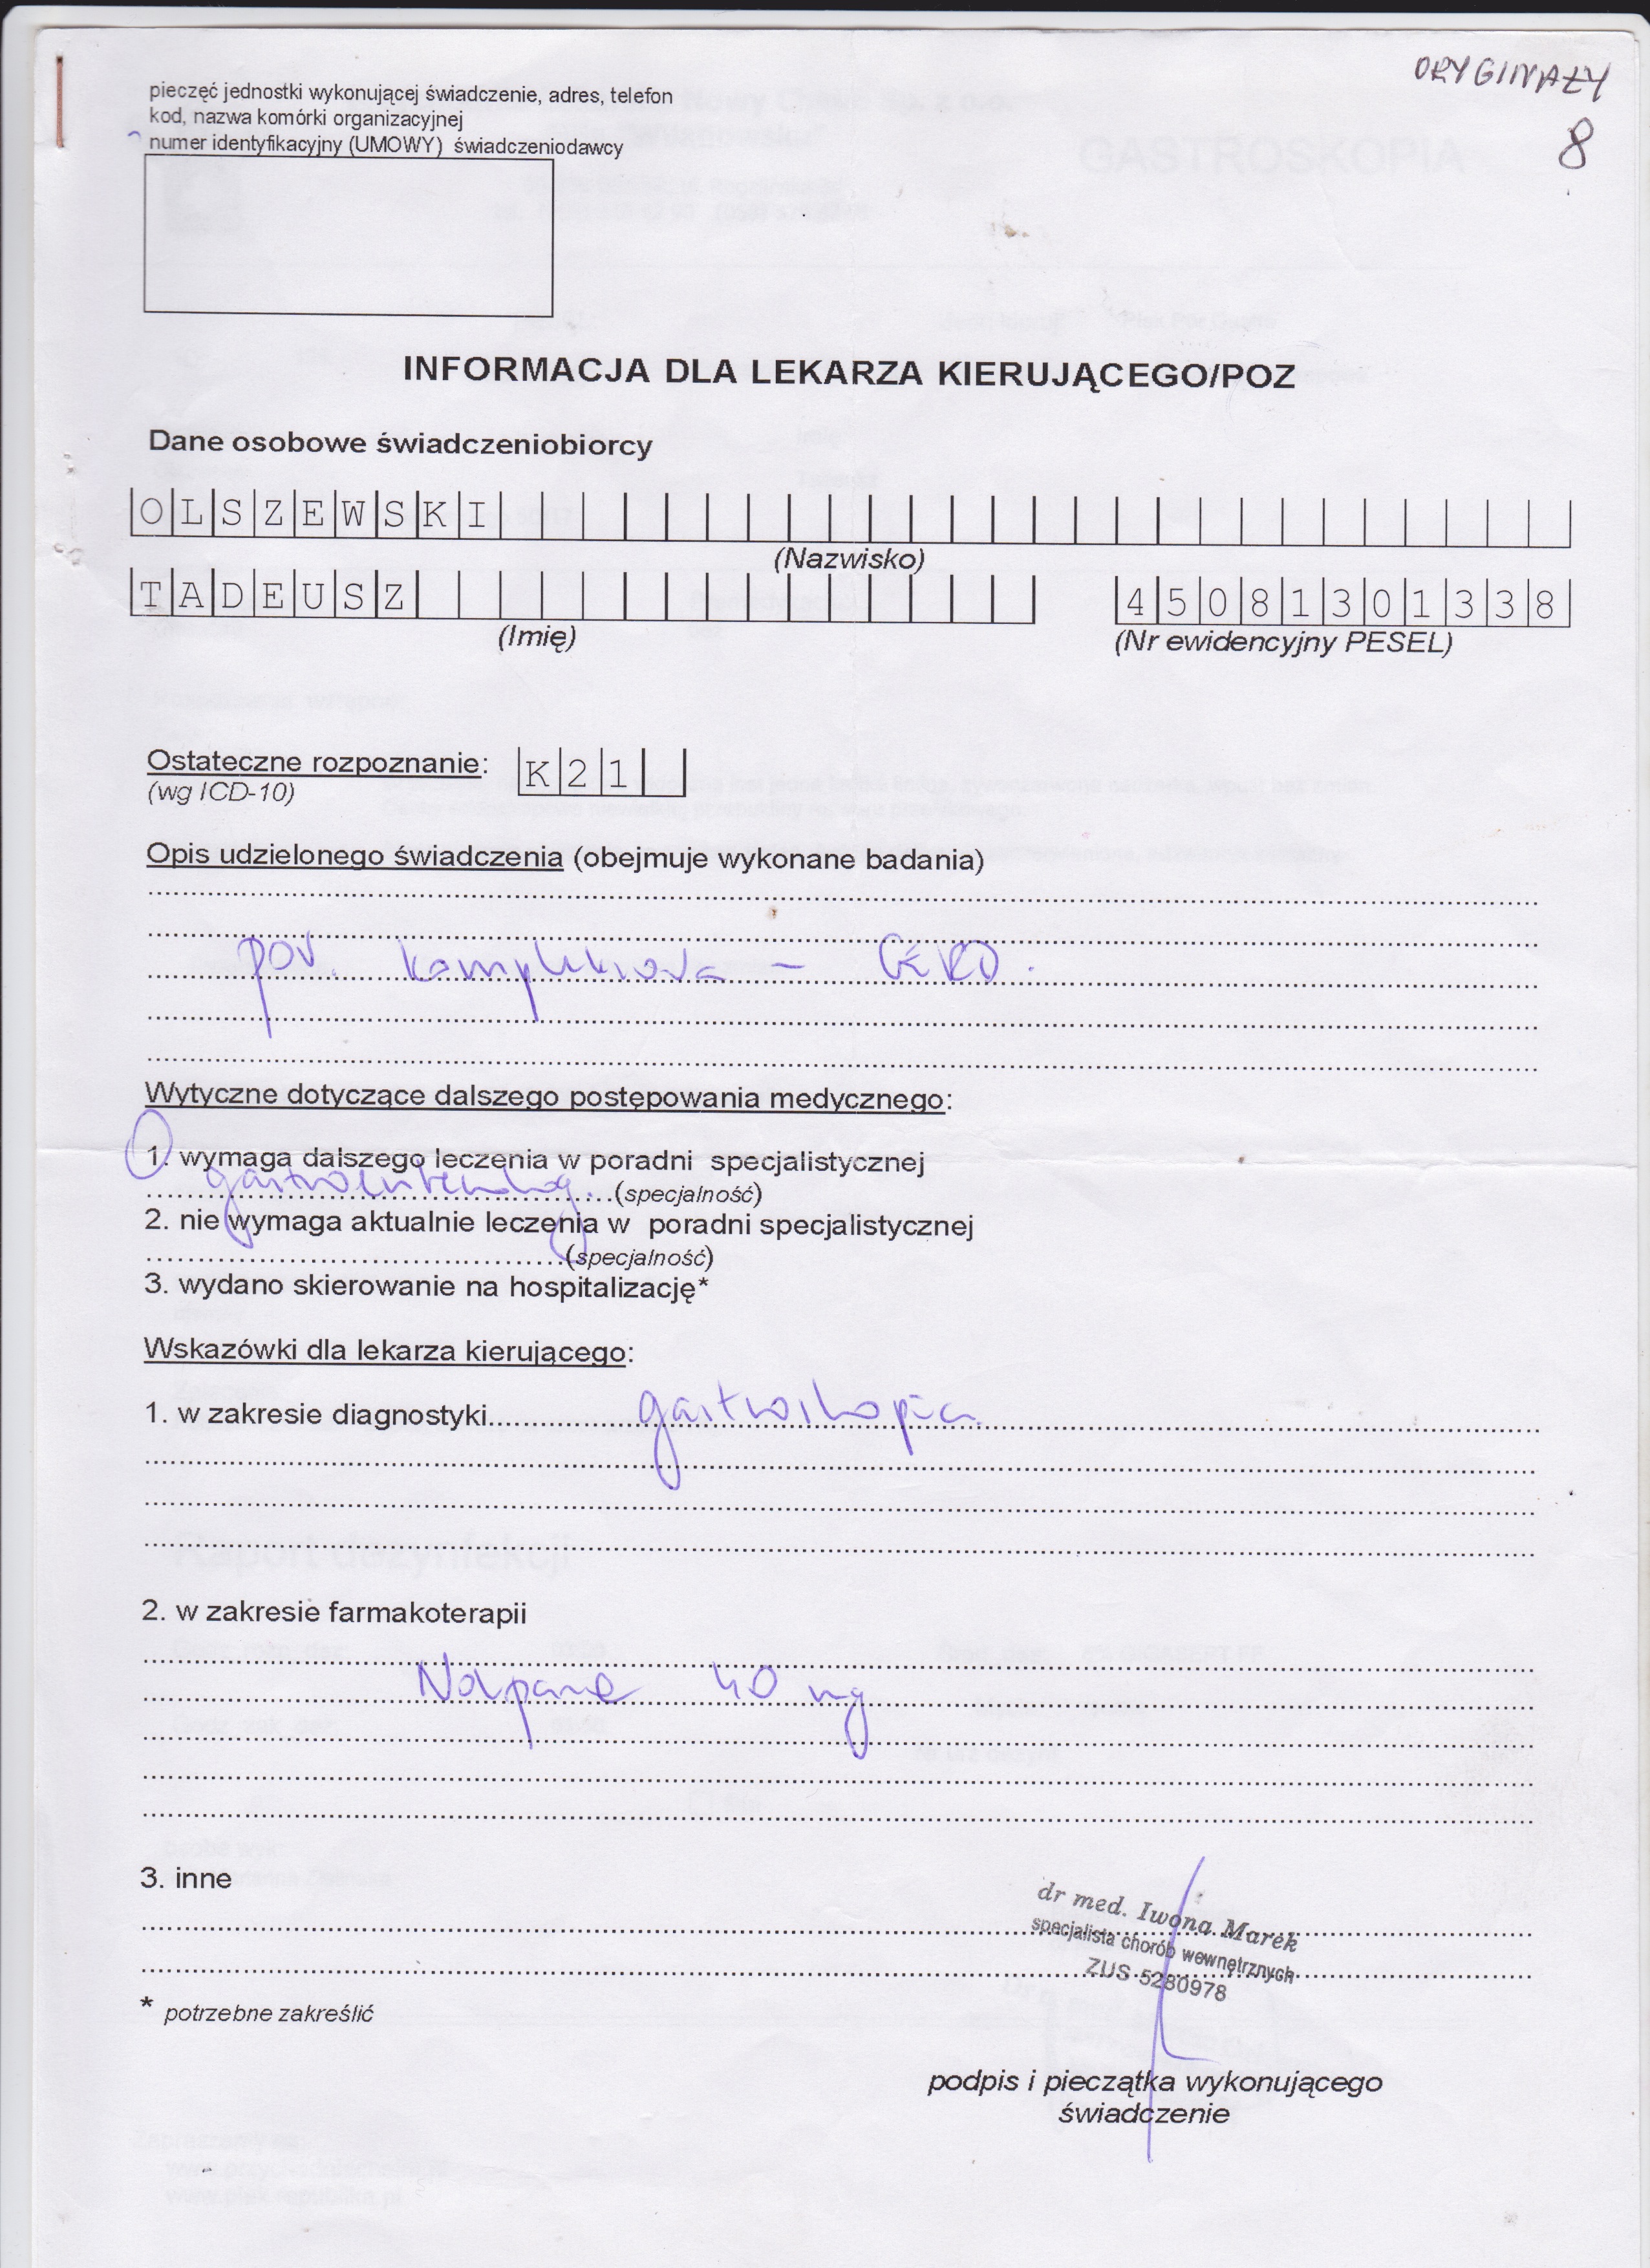 ORYGINAŁY
8
pieczęć jednostki wykonującej świadczenie, adres, telefon
kod, nazwa komórki organizacyjnej
numer identyfikacyjny (UMOWY) świadczeniodawcy
GASTROSKOPIA
INFORMACJA DLA LEKARZA KIERUJĄCEGO/POZ
Dane osobowe świadczeniobiorcy
OLSZEWSKI
(Nazwisko)
TADEUSZ 45081301338
(Imię) (Nr ewidencyjny PESEL)
Ostateczne rozpoznanie: K21
(wg ICD-10)
Opis udzielonego świadczenia (obejmuje wykonane badania)
por. kompleksowa - GERD.
Wytyczne dotyczące dalszego postępowania medycznego:
1. wymaga dalszego leczenia w poradni specjalistycznej
gastroenterolog. (specjalność)
2. nie wymaga aktualnie leczenia w poradni specjalistycznej
(specjalność)
3. wydano skierowanie na hospitalizację*
Wskazówki dla lekarza kierującego:
1. w zakresie diagnostyki gastroskopia
Raport dezynfekcji
2. w zakresie farmakoterapii
Nolpaza 40 mg
3. inne
dr med. Iwona Marek
specjalista chorób wewnętrznych
ZUS 5280978
* potrzebne zakreślić
podpis i pieczątka wykonującego
świadczenie